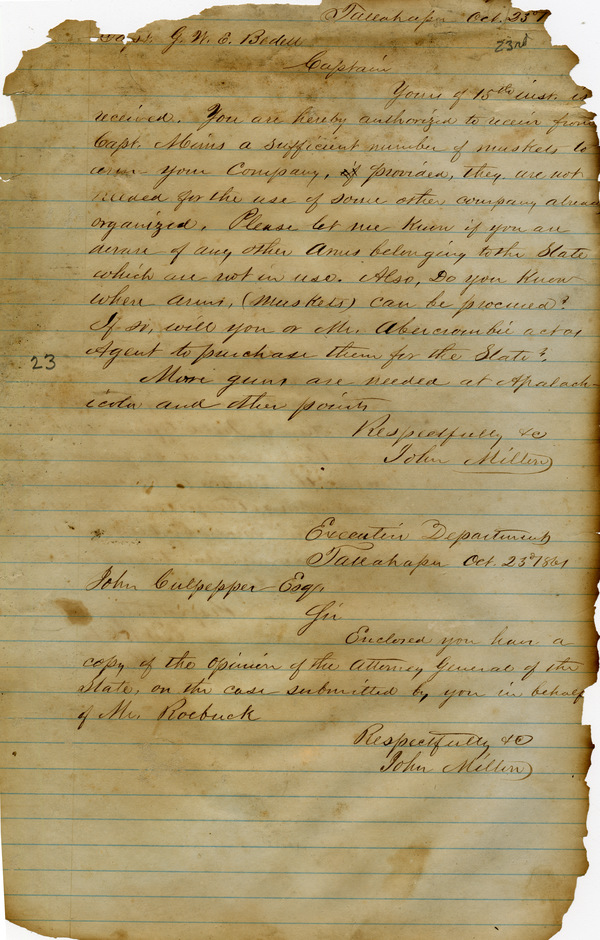 Tallahassee Oct. 23d
23rd
Capt. G. W. E. Bedell
Captain
Yours of 15th inst. is
received. You are hereby authorized to receive from
Capt. Mims a sufficient number of muskets to
arm your Company, provided, they are not
needed for the use of some other company already
organized. Please let me know if you are
aware of any other Arms belonging to the State
which are not in use. Also, Do you know
where arms, (muskets) can be procured?
If so, will you or Mr. Abercrombie act as
Agent to purchase them for the State?
23
More guns are needed at Apalach-
icola and other points
Respectfully &c
John Milton
Executive Department
Tallahassee Oct. 23d 1861
John Culpepper Esq.
Sir
Enclosed you have a
copy of the Opinion of the Attorney General of the
State, on the case submitted by you in behalf
of Mr. Roebuck
Respectfully &c
John Milton